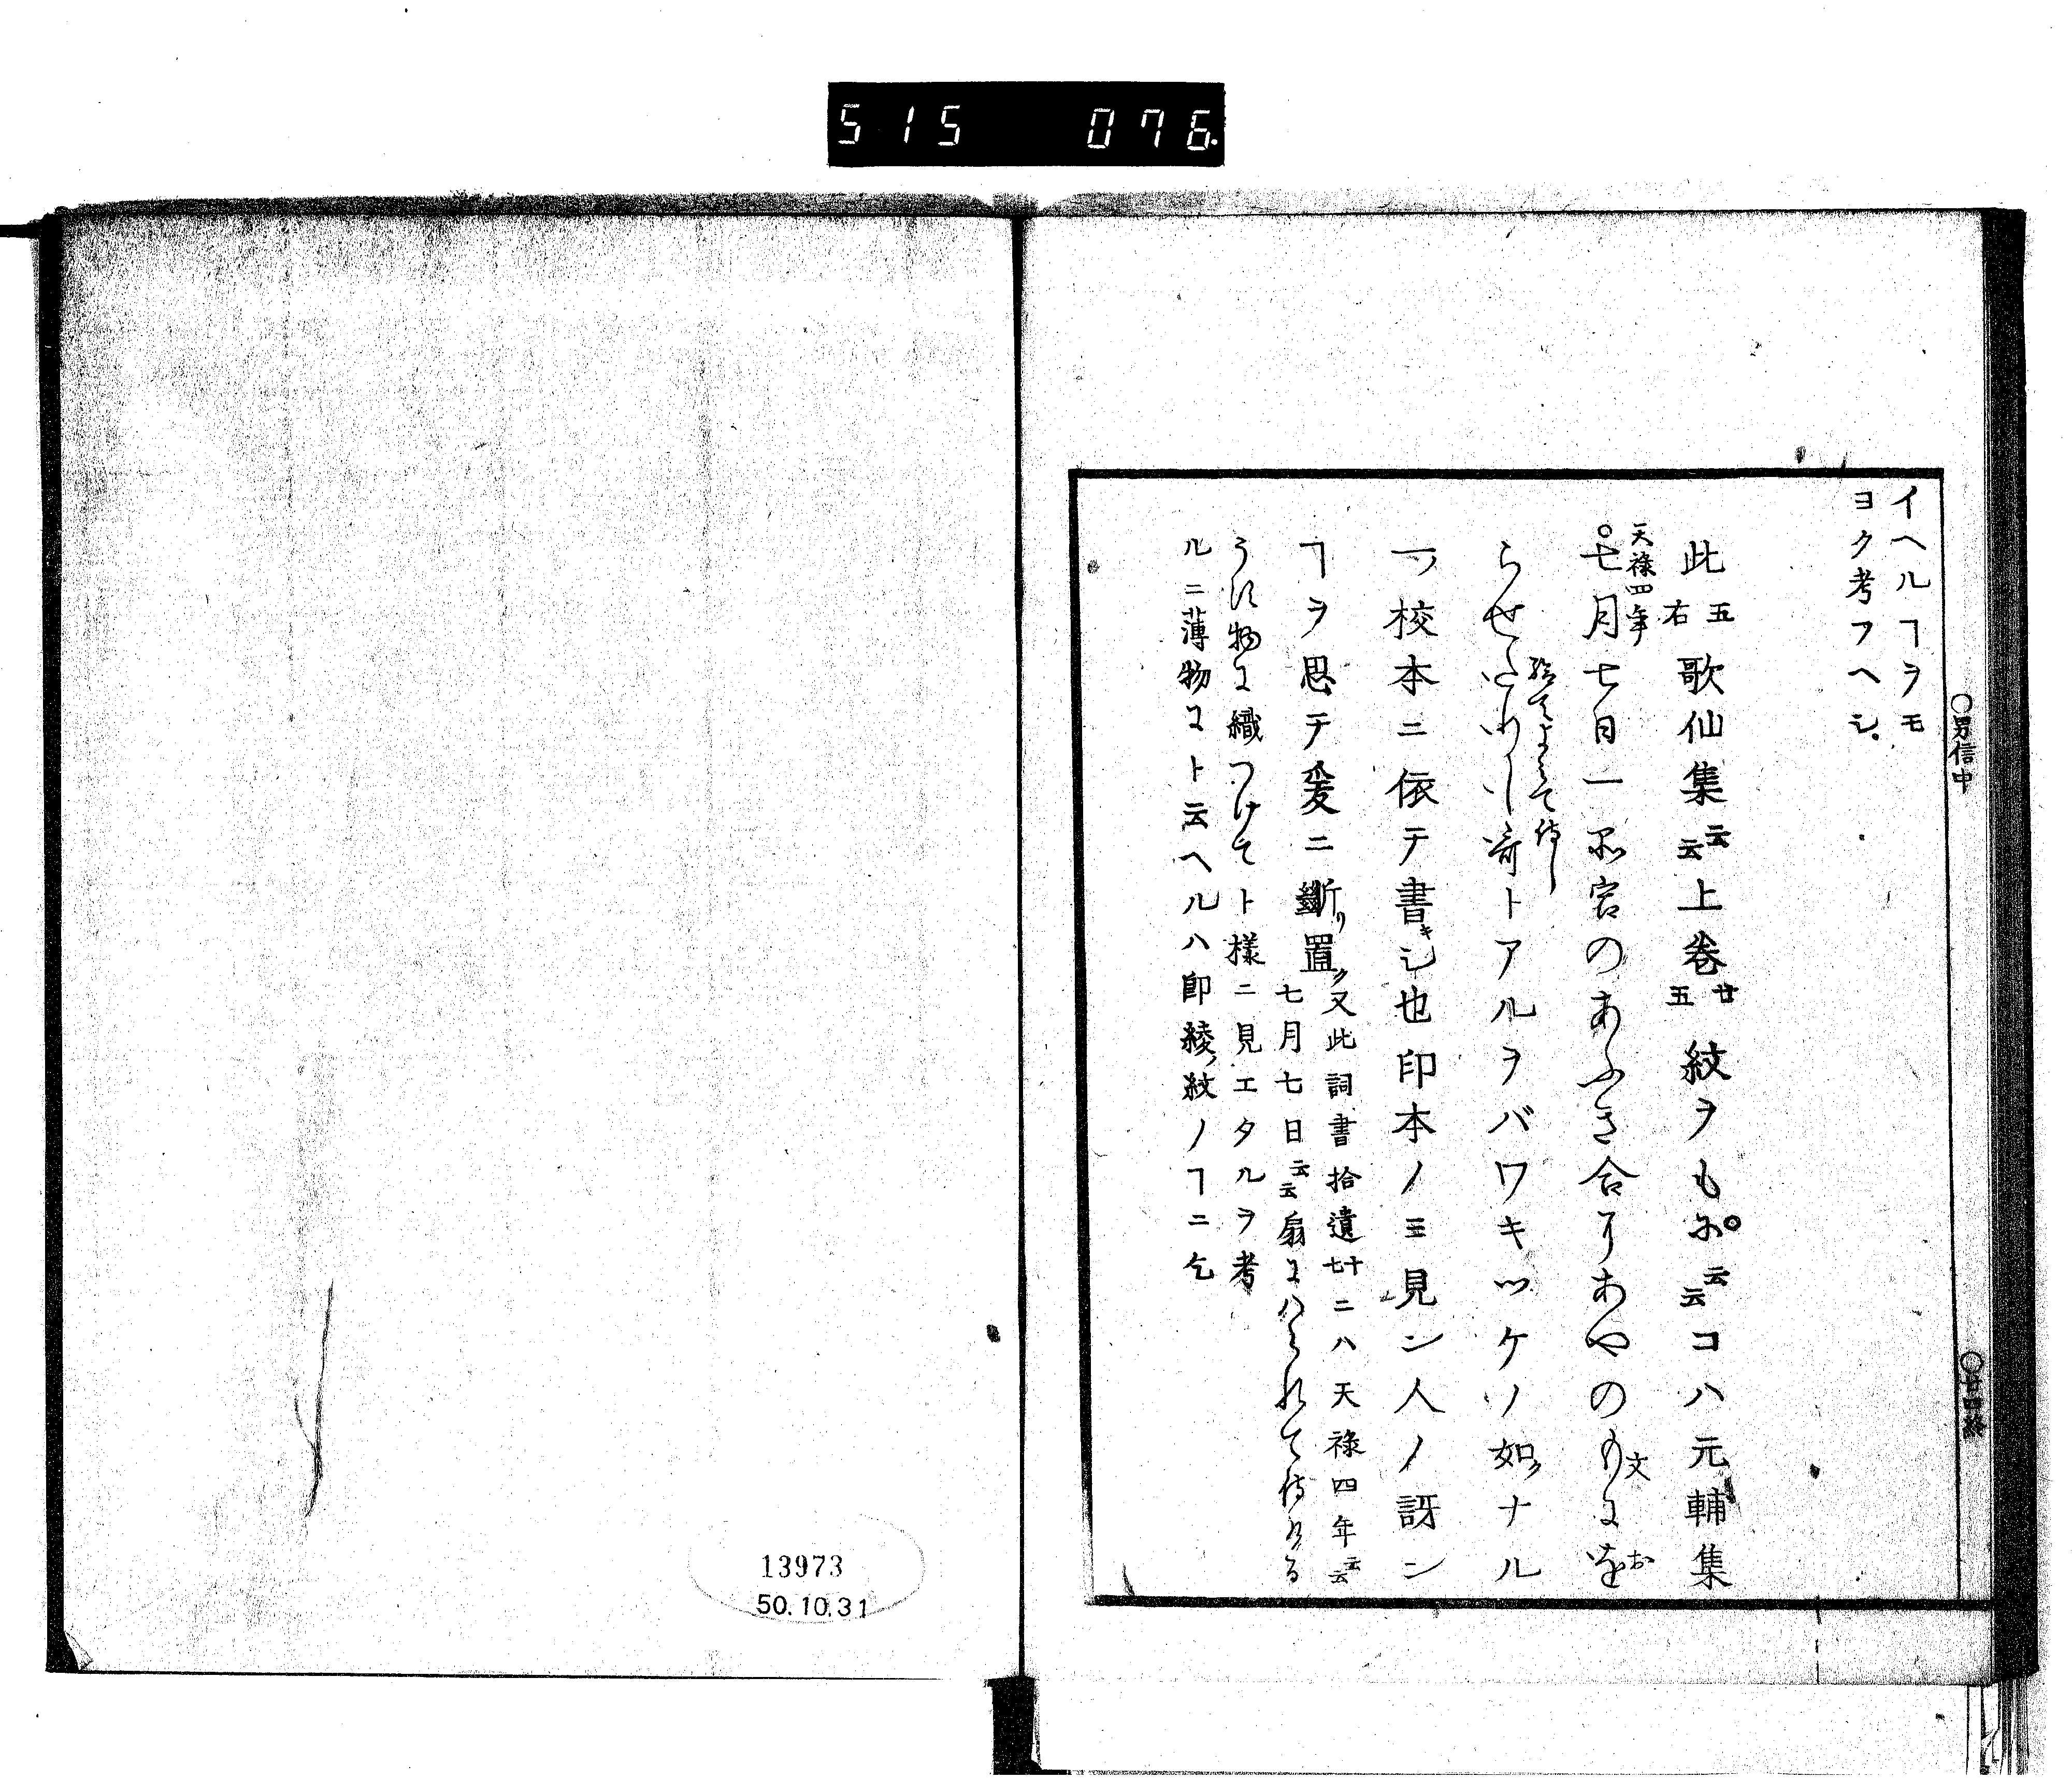 515 076.
イヘルヿヲモ
ヨク考フヘシ。
○男信中
○廿四終
此五右歌仙集云云上卷廿五紋ヲもに云云コハ元輔集
天祿四年
七月七日一品宮のあふき合りあやのもんにを
文
お
らせ
て侍し
トアルヲバワキツケノ如クナル
ヿ校本ニ依テ書キシ也印本ノミ見ン人ノ訝ン
ヿヲ思テ爰ニ斷リ置ク
又此詞書拾遺十七ニハ天祿四年云云
七月七日云云扇にはられて侍ける
うす物に織つけてト樣ニ見エタルヲ考
ルニ薄物にト云ヘルハ卽綾ノ紋ノヿニ乞
13973
50.10.31